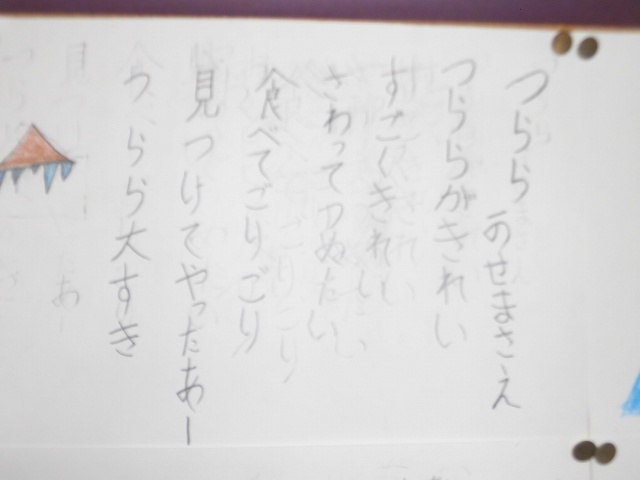 つらら のせまさえ
つららがきれい
すごくきれい
さわってつめたい
食べてごりごり
見つけてやったあー
つらら大すき